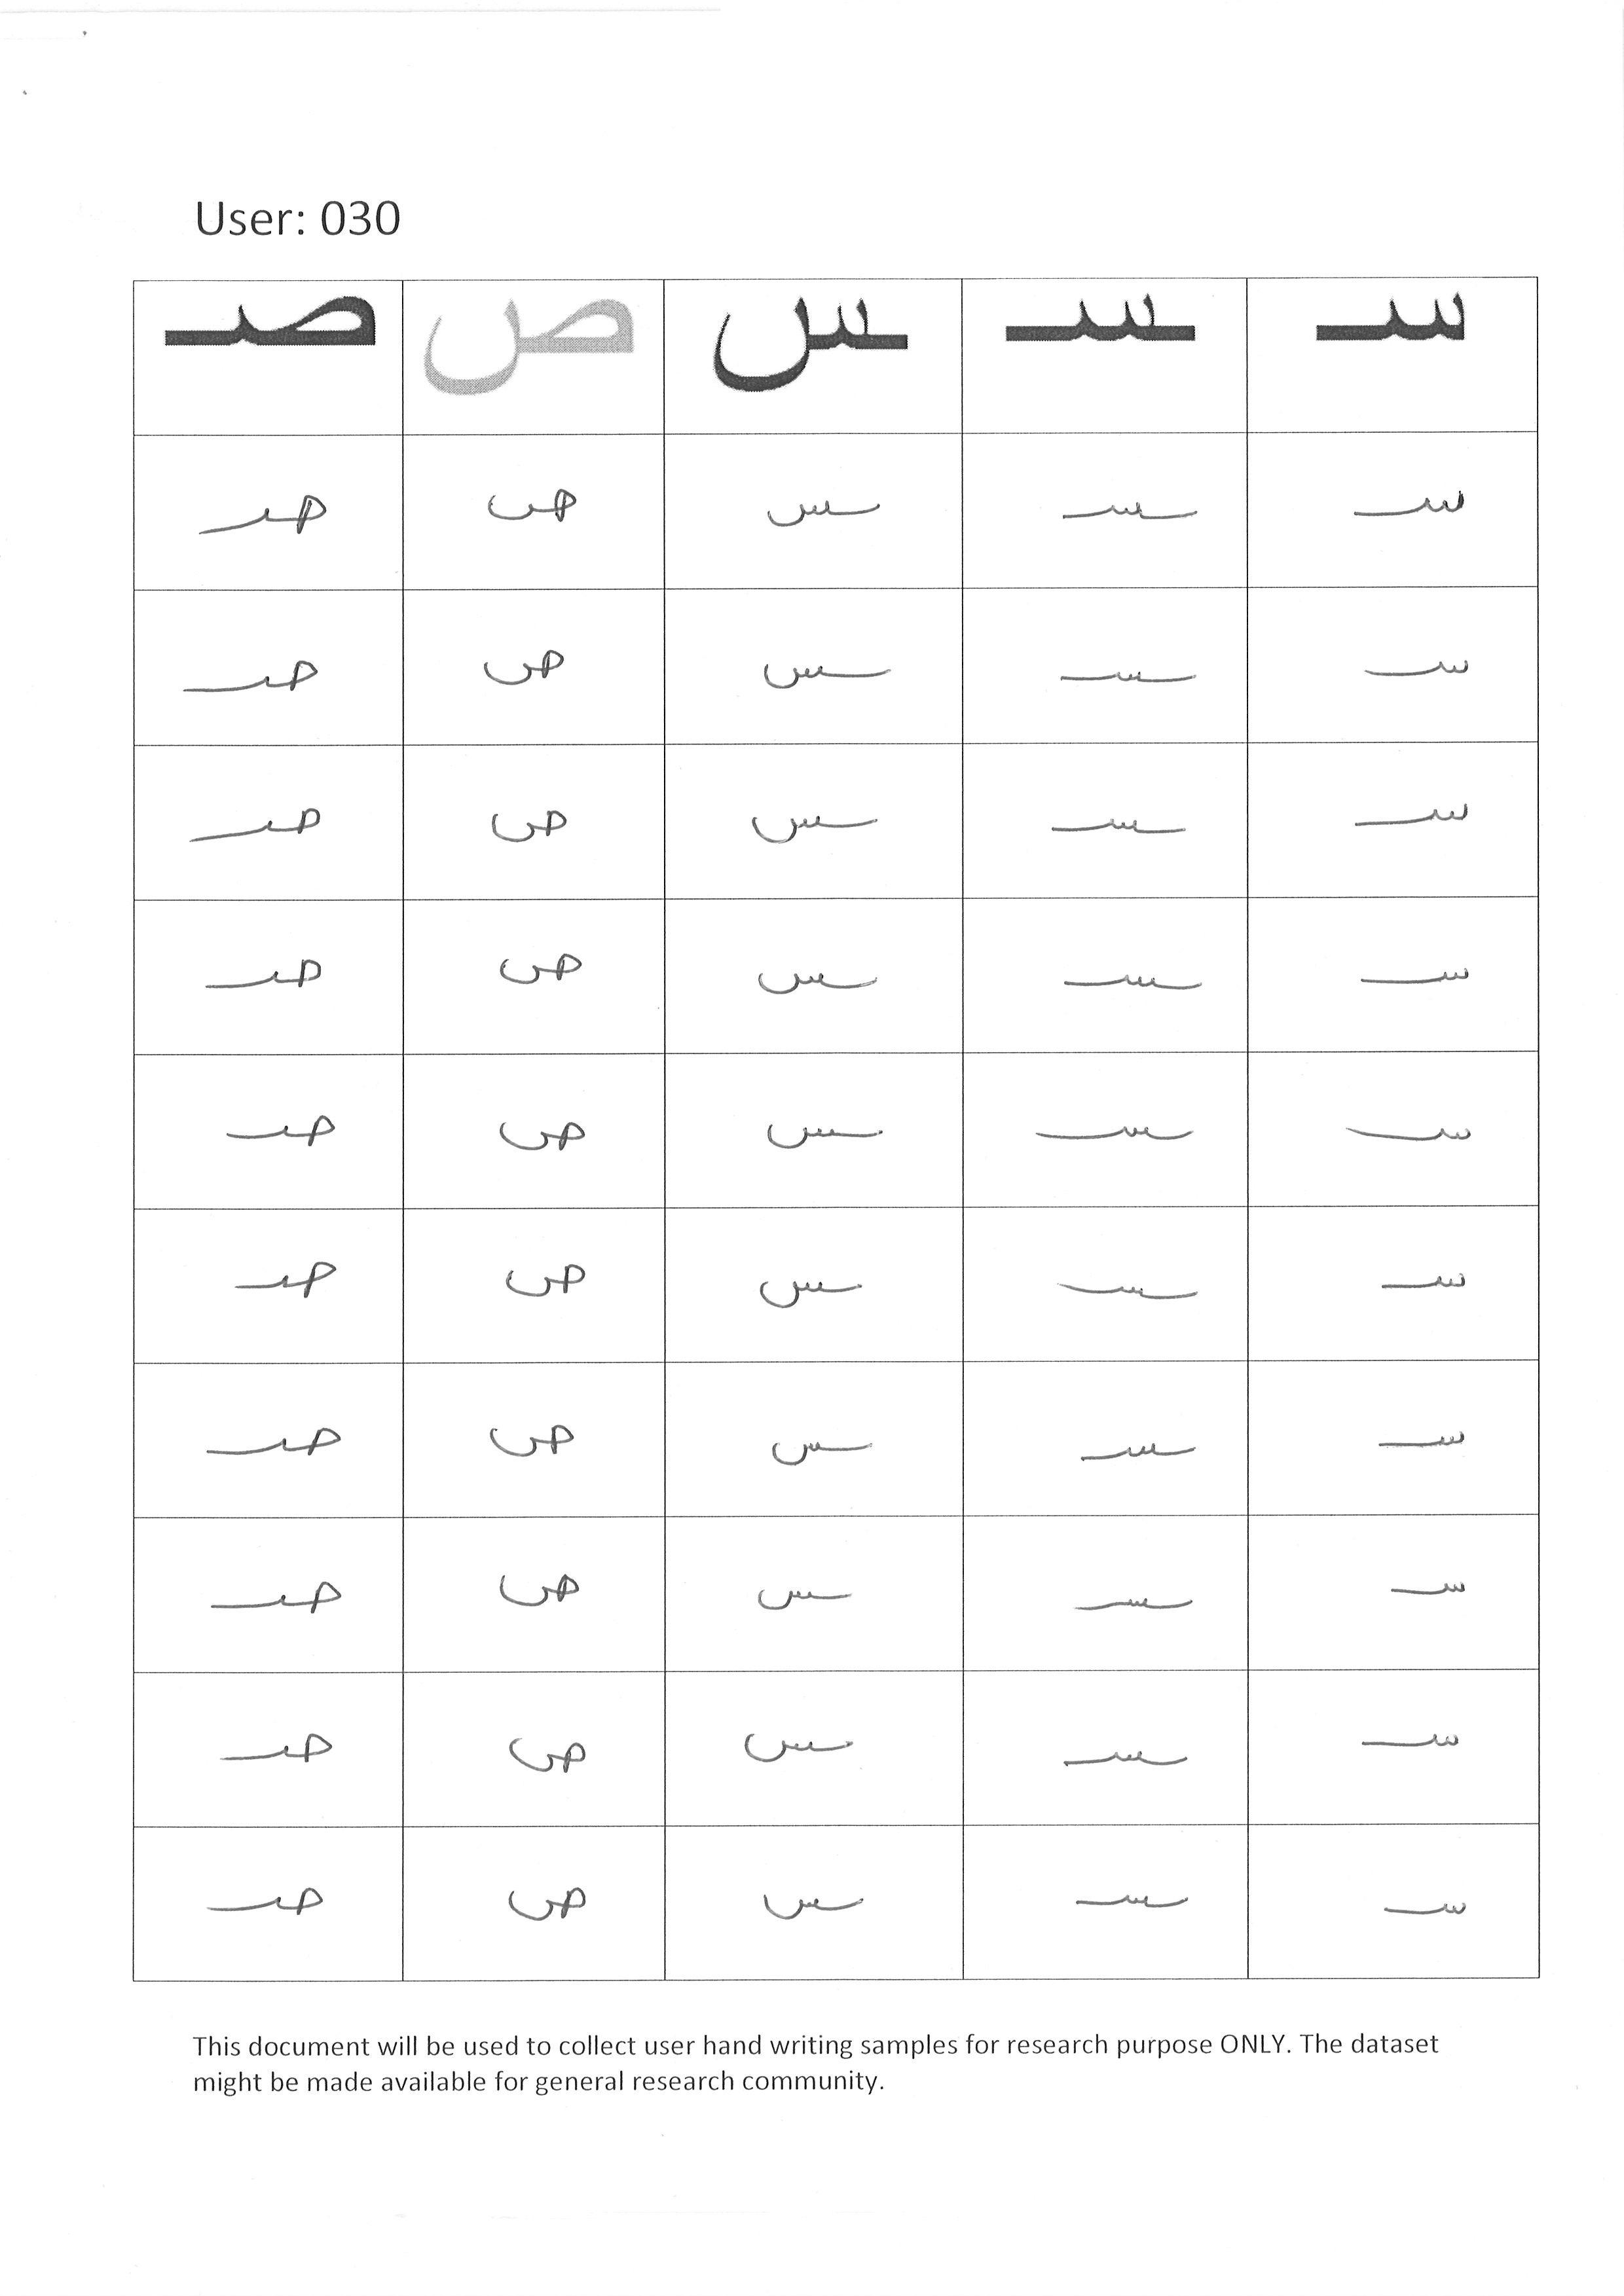 User: 030
سـ ـسـ ـس ص صـ
سـ ـسـ ـس ص صـ
سـ ـسـ ـس ص صـ
سـ ـسـ ـس ص صـ
سـ ـسـ ـس ص صـ
سـ ـسـ ـس ص صـ
سـ ـسـ ـس ص صـ
سـ ـسـ ـس ص صـ
سـ ـسـ ـس ص صـ
سـ ـسـ ـس ص صـ
سـ ـسـ ـس ص صـ
This document will be used to collect user hand writing samples for research purpose ONLY. The dataset
might be made available for general research community.